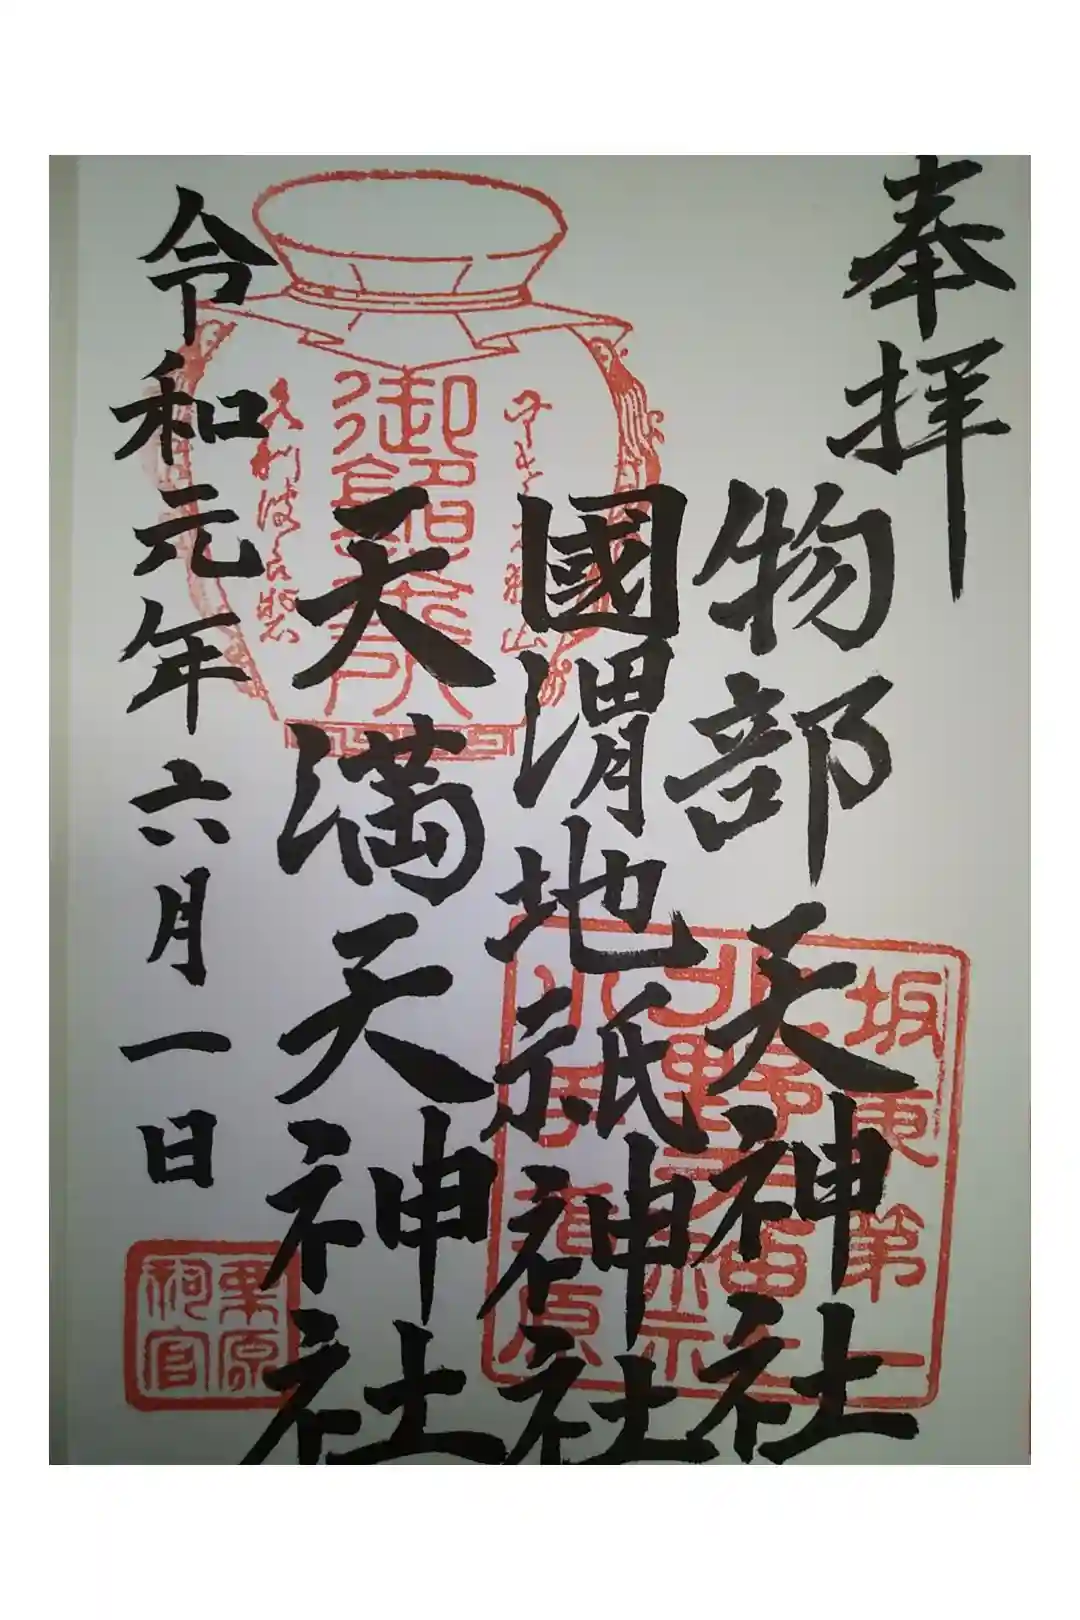 奉拝
物部天神社
國渭地祇神社
天満天神社
令和元年六月一日
坂東第一
北野天神
栗原
祠官